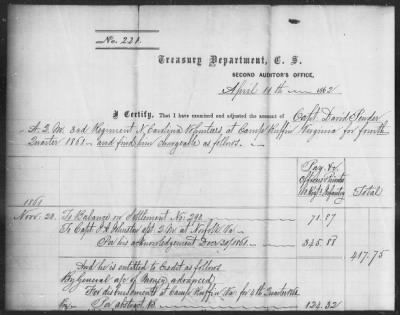 No. 221.
Treasury Department, C. S.
SECOND AUDITOR'S OFFICE,
April 11th 1862
I Certify, That I have examined and adjusted the account of Capt. David
A. Q. M. 3rd Regiment N. Carolina Volunteers, at Camp Ruffin Virginia for fourth
Quarter 1861 and find him chargeable as follows.
Pay &c
Officers & Privates
Infantry
Total
1861
Nov. 20. To Balance on Settlement No. 290 71.87
To Capt. J. A. Johnston Q M at Norfolk Va
Per his acknowledgement Dec 20/1861 345.88
417.75
And he is entitled to Credit as follows
By General a/c of Money advanced,
For disbursements at Camp Ruffin Va for 4th Quarter 1861
Per abstract B 124.32